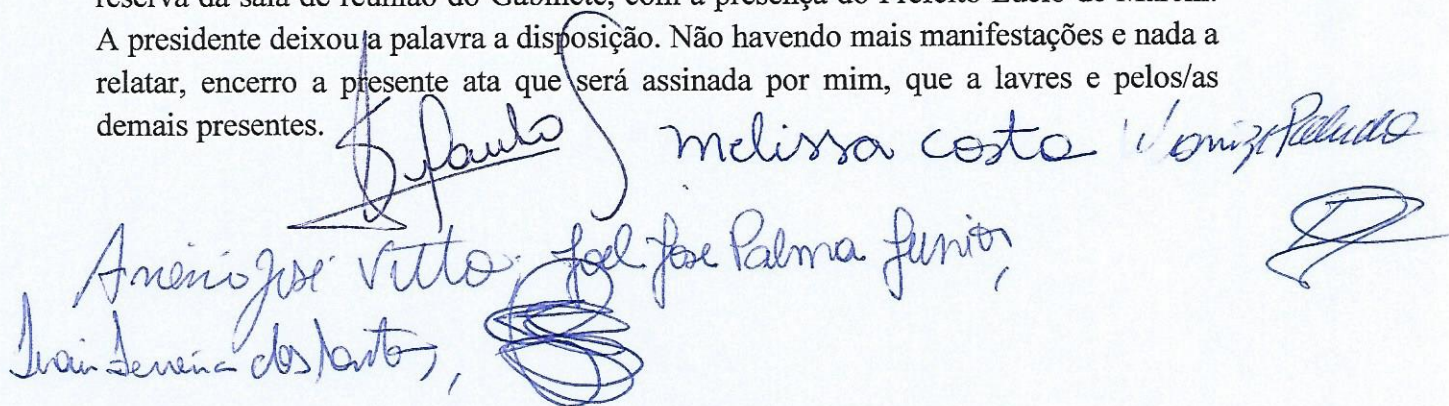 reserva da sala de reunião do Gabinete, com a presença do Prefeito Lucio de Marchi.
A presidente deixou a palavra a disposição. Não havendo mais manifestações e nada a
relatar, encerro a presente ata que será assinada por mim, que a lavres e pelos/as
demais presentes.
Paulo melissa costa Paludo
José Vitto, Joel José Palma Junior,
Ivair Ferreira dos Santos,